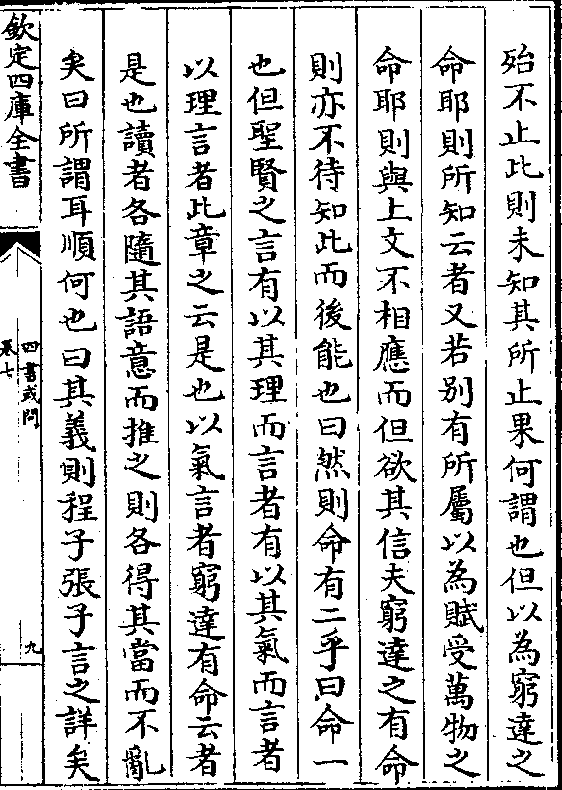 殆不止此則未知其所止果何謂也但以為窮達之
命耶則所知云者又若別有所屬以為賦受萬物之
命耶則與上文不相應而但欲其信夫窮達之有命
則亦不待知此而後能也曰然則命有二乎曰命一
也但聖賢之言有以其理而言者有以其氣而言者
以理言者此章之云是也以氣言者窮達有命云者
是也讀者各隨其語意而推之則各得其當而不亂
矣曰所謂耳順何也曰其義則程子張子言之詳矣
欽定四庫全書
四書或問
卷七
九